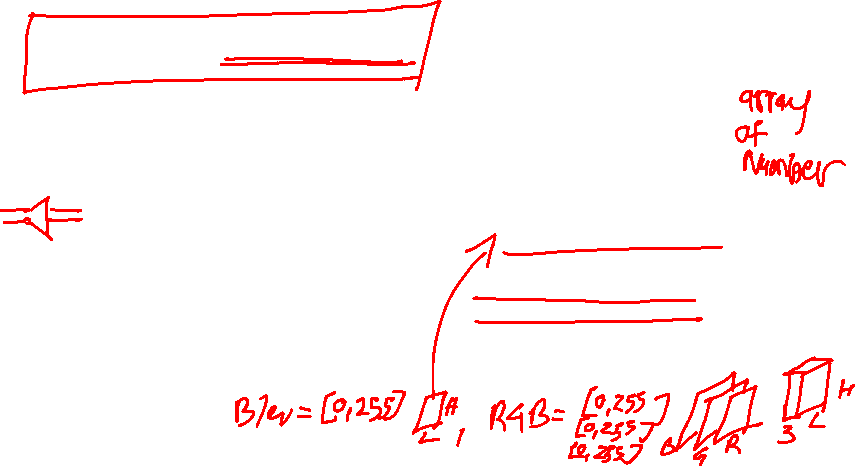 array
of
Number
B/w = [0,255] H L 1 RGB = [0,255]
[0,255]
[0,255]
B G R
3 L H